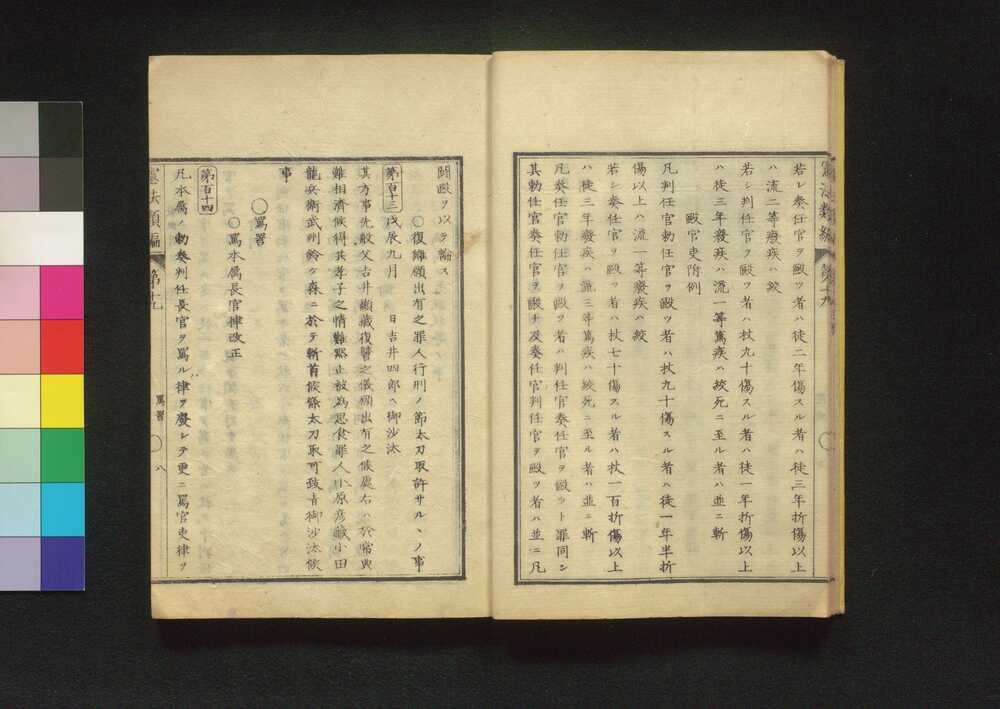 憲法類編 第十九
若シ奏任官ヲ毆ツ者ハ徒二年傷スル者ハ徒三年折傷以上
ハ流二等癈疾ハ絞
若シ判任官ヲ毆ツ者ハ杖九十傷スル者ハ徒一年折傷以上
ハ徒三年癈疾ハ流一等篤疾ハ絞死ニ至ル者ハ並ニ斬
毆官吏附例
凡判任官勅任官ヲ毆ツ者ハ杖九十傷スル者ハ徒一年半折
傷以上ハ流一等癈疾ハ絞
若シ奏任官ヲ毆ツ者ハ杖七十傷スル者ハ杖一百折傷以上
ハ徒三年癈疾ハ流三等篤疾ハ絞死ニ至ル者ハ並ニ斬
凡奏任官勅任官ヲ毆ツ者ハ判任官奏任官ヲ毆ツト罪同シ
其勅任官奏任官ヲ毆チ及奏任官判任官ヲ毆ツ者ハ並ニ凡
鬪毆ヲ以テ論ス
○復讐願出有之罪人行刑ノ節太刀取許サルヽノ事
第百十三戊辰九月 日吉井四郎ヘ御沙汰
其方事先般父吉井顯藏復讐之儀願出有之候處右ハ於常典
難相濟候得共孝子之情難默止被為思食罪人小原彦藏小田
龍兵衛武州鈴ケ森ニ於テ斬首候條太刀取可致旨御沙汰候
事
○罵詈
○罵本属長官律改正
第百十四
凡本属ノ勅奏判任長官ヲ罵ル律ヲ廢シテ更ニ罵官吏律ヲ
憲法類編 第十九 罵詈 ○ 八